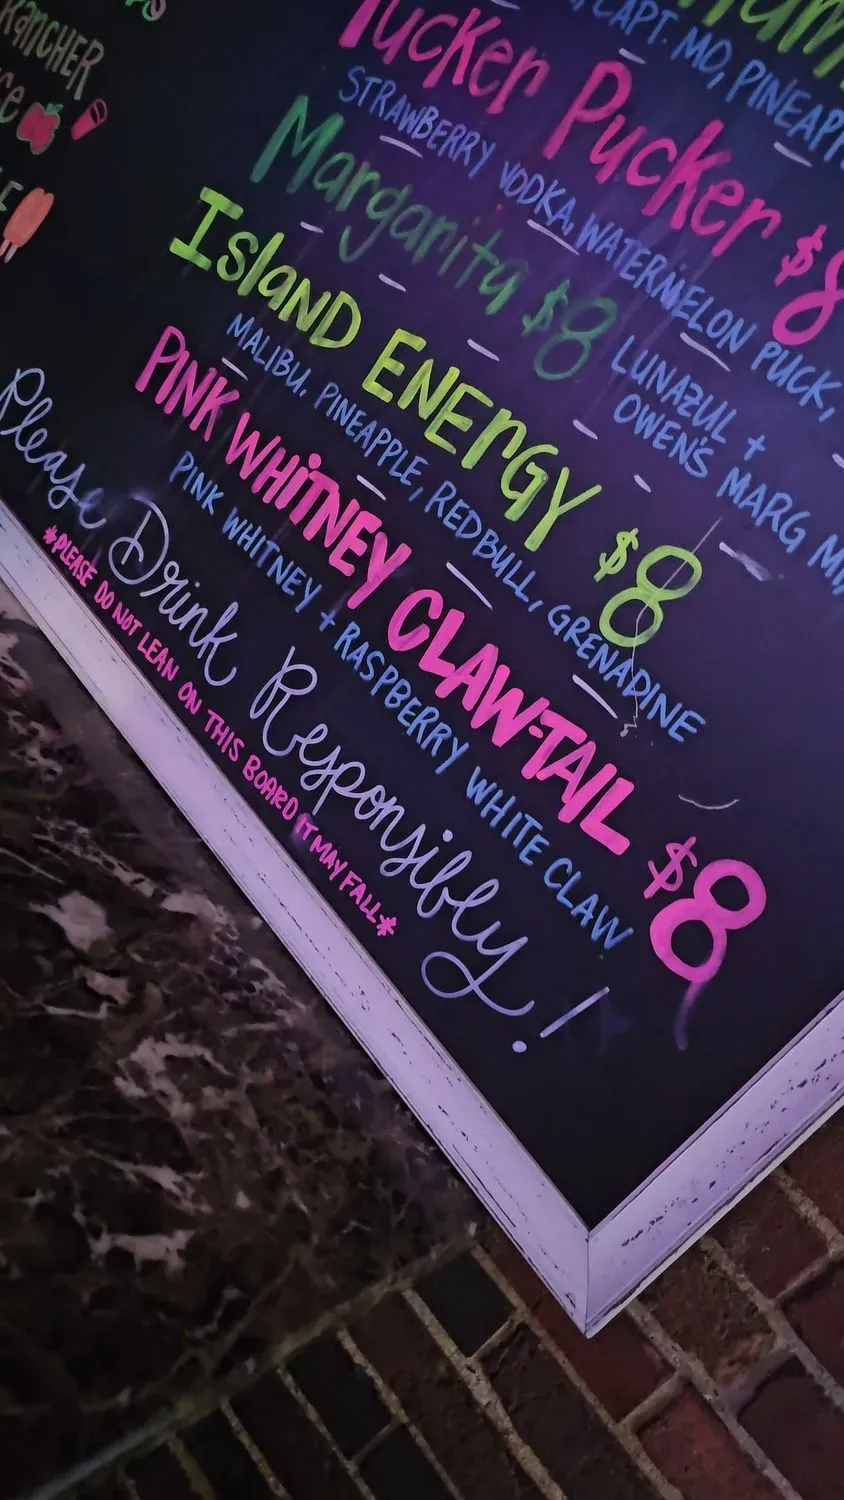 RANCHER
CAPT. MO, PINEAPP
Tucker Pucker $8
STRAWBERRY VODKA, WATERMELON PUCK,
Margarita $8 LUNAZUL +
OWEN'S MARG MI
ISLAND ENERGY $8
MALIBU, PINEAPPLE, REDBULL, GRENADINE
PINK WHITNEY CLAW-TAIL $8
PINK WHITNEY + RASPBERRY WHITE CLAW
Please Drink Responsibly!
*PLEASE DO NOT LEAN ON THIS BOARD IT MAY FALL*